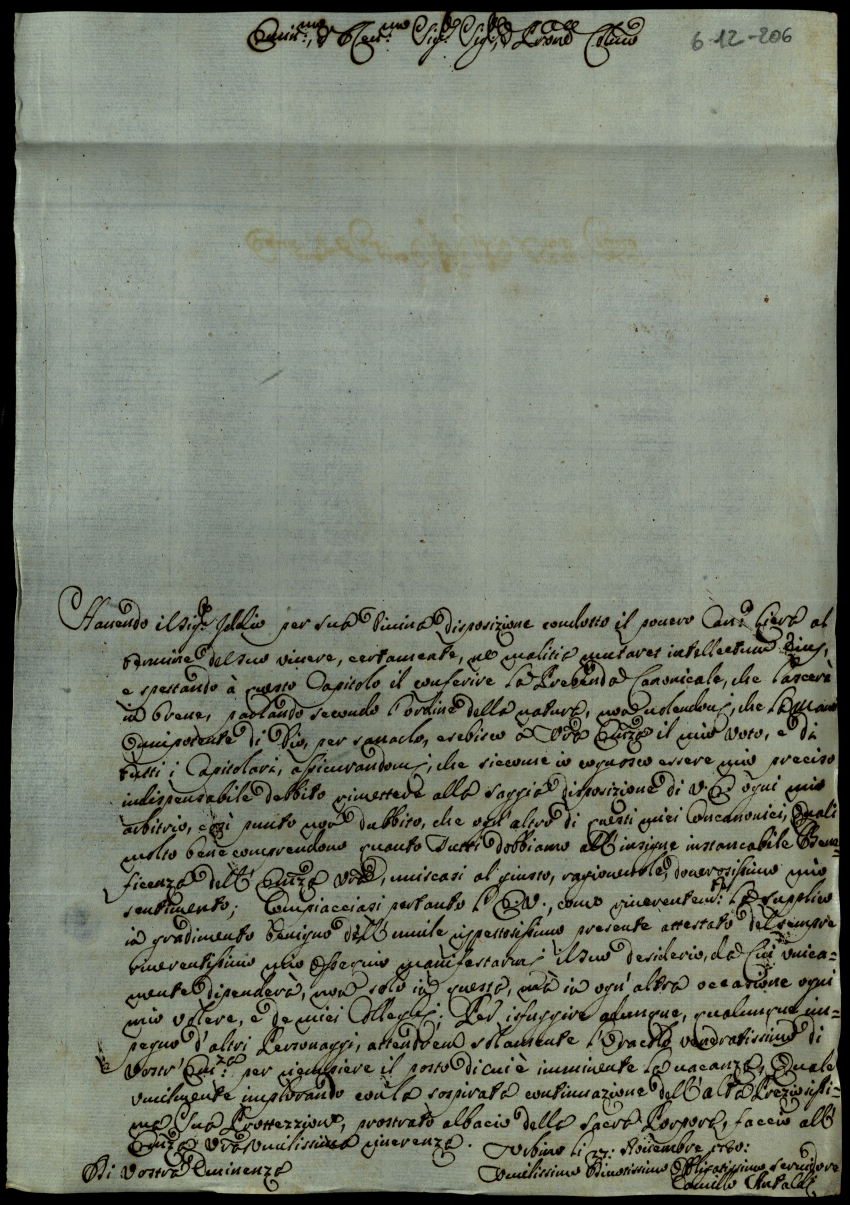 Emin:mo, e Rev:mo Sig:r Sig:r, e Prone Colmo
6-12-206
Hauendo il Sig:r Iddio per sua Diuina disposizione condotto il pouero Can:o Ciera al
termine del suo viuere, certamente, ne malitia mutaret intellectum Eius,
e spettando à questo Capitolo il conferire la Prebenda Canonicale, che lascerà
in breue, parlando secondo l'ordine della natura, non uolendo, che la Mano
Onnipotente di Dio, per sanarlo, esebisco à Vra Emza il mio voto, e di
tutti i Capitolari, assicurandomi, che siccome io conosco essere mio preciso
indispensabile debbito rimettere alla saggia disposizione di V. E. ogni mio
arbitrio, così punto non dubbito, che ogn'altro di questi miei Concanonici, quali
molto bene comprendono quanto Tutti dobbiamo all'insigne instancabile Bene-
ficenza dell'Emza Vra, uniscasi al giusto, ragioneuole, douerosissimo mio
sentimento; Compiacciasi pertanto l'E. V., come riuerentem:te la supplico
in gradimento benigno dell'umile rispettosissimo presente attestato del sempre
riuerentissimo mio Ossequio manifestarmi il suo desiderio, da Cui vnica-
mente dipenderà, non solo in questa, mà in ogn'altra occasione ogni
mio volere, e de miei Colleghi; Per isfuggire adunque, qualunque im-
pegno d'altri Personaggi, attenderem solamente l'Oracolo veneratissimo di
Vostr'Em:za per riempiere il posto di cui è imminente la vacanza, Quale
vmilmente implorando con la sospirata continuazione dell'alta Preziosissi-
ma Sua Protezzione, prostrato al bacio della Sacra Porpora, faccio all'
Emza Vra vmilissima riuerenza.
Vrbino li 27: Nouembre 1720:
Di Vostra Eminenza
Vmilissimo Diuotissimo Obbligatissimo Seruidore
Camillo Antaldi